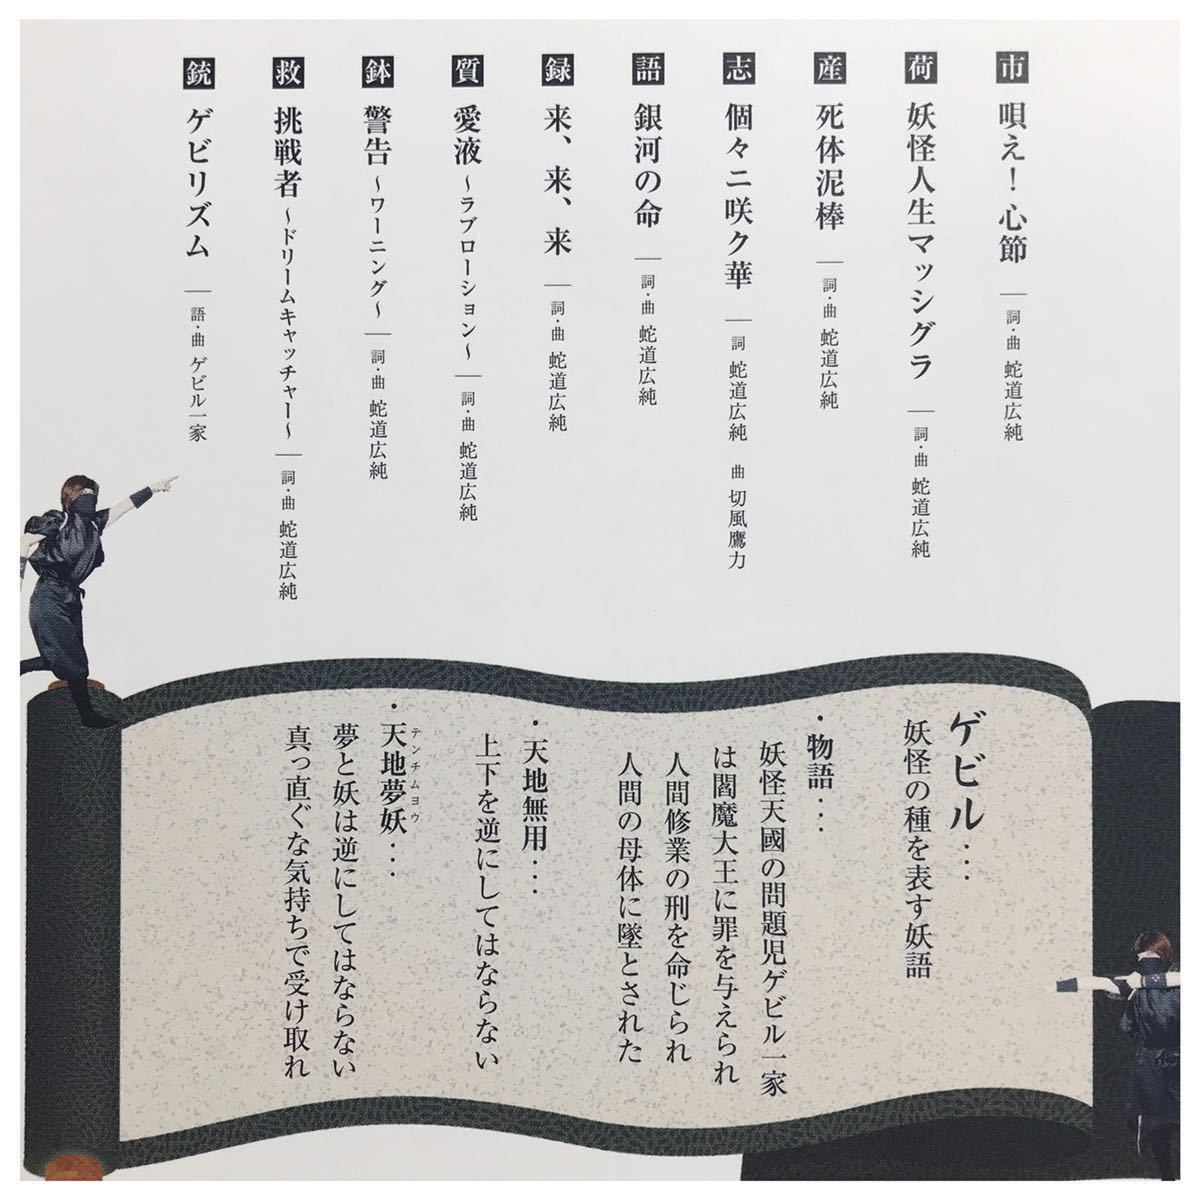 市 唄え！心節 ― 詞・曲 蛇道広純
荷 妖怪人生マッシグラ ― 詞・曲 蛇道広純
産 死体泥棒 ― 詞・曲 蛇道広純
志 個々ニ咲ク華 ― 詞 蛇道広純 曲 切風鷹力
語 銀河の命 ― 詞・曲 蛇道広純
録 来、来、来 ― 詞・曲 蛇道広純
質 愛液～ラブローション～ ― 詞・曲 蛇道広純
鉢 警告～ワーニング～ ― 詞・曲 蛇道広純
救 挑戦者～ドリームキャッチャー～ ― 詞・曲 蛇道広純
銃 ゲビリズム ― 語・曲 ゲビル一家
ゲビル・・・
妖怪の種を表す妖語
・物語・・・
妖怪天國の問題児ゲビル一家
は閻魔大王に罪を与えられ
人間修業の刑を命じられ
人間の母体に墜とされた
・天地無用・・・
上下を逆にしてはならない
・天地夢妖・・・
テンチムヨウ
夢と妖は逆にしてはならない
真っ直ぐな気持ちで受け取れ